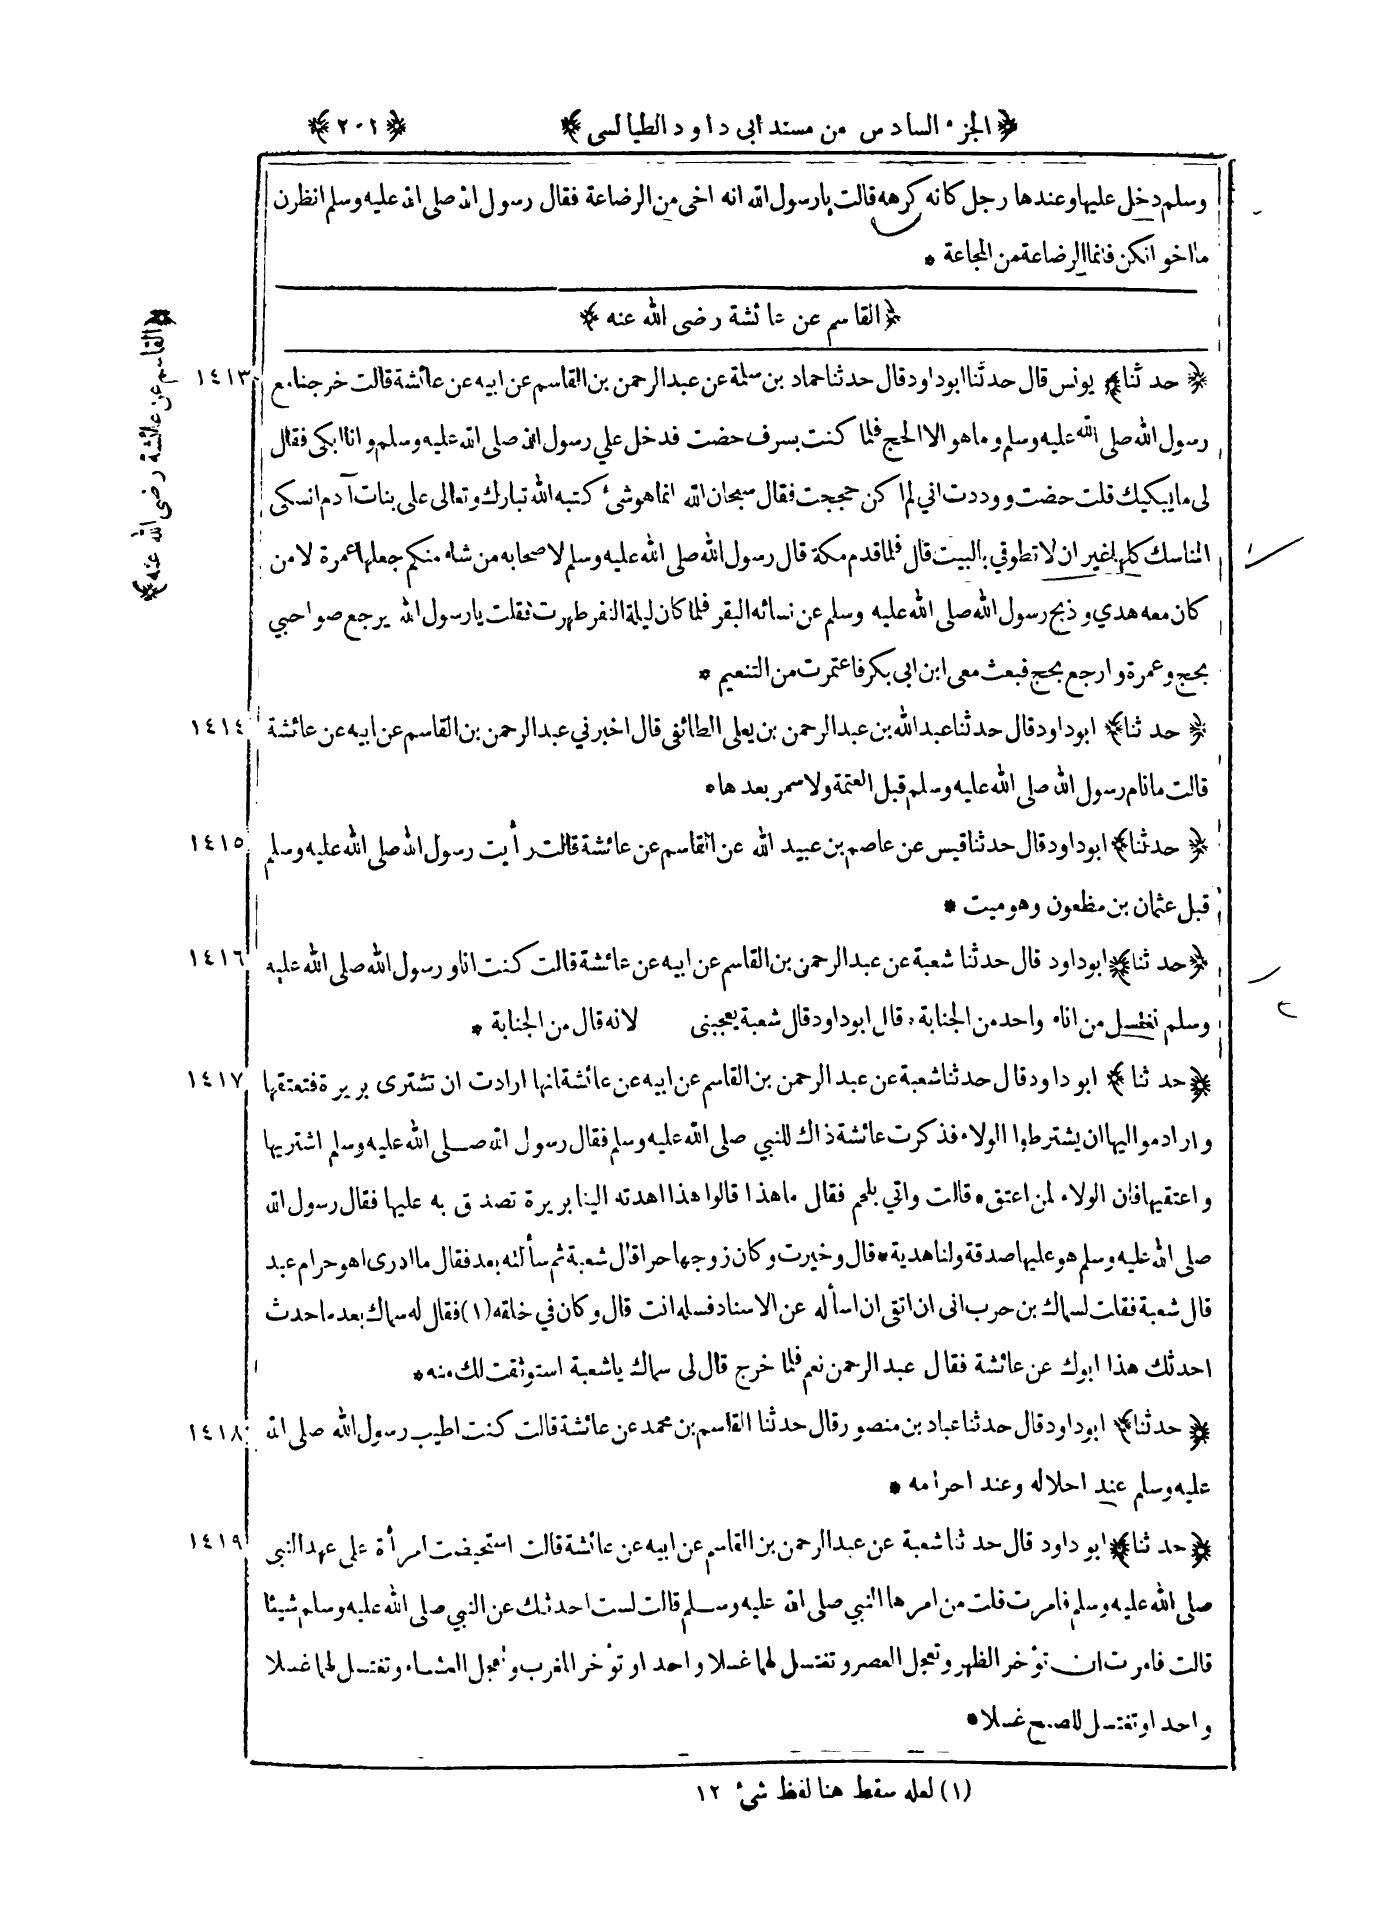 ﴿الجزء السادس من مسند ابى داود الطيالسى﴾ ﴿٢٠١﴾
وسلم دخل عليها وعندها رجل كانه كرهه قالت يارسول الله انه اخى من الرضاعة فقال رسول الله صلى الله عليه وسلم انظرن
ما اخوانكن فانما الرضاعة من المجاعة *
﴿القاسم عن عائشة رضى الله عنه﴾
﴿القاسم عن عائشة رضى الله عنه﴾
١٤١٣ ﴿حدثنا﴾ يونس قال حدثنا ابوداود قال حدثنا حماد بن سلمة عن عبدالرحمن بن القاسم عن ابيه عن عائشة قالت خرجنا مع
رسول الله صلى الله عليه وسلم وماهو الا الحج فلما كنت بسرف حضت فدخل علي رسول الله صلى الله عليه وسلم وانا ابكى فقال
لى مايبكيك قلت حضت ووددت اني لم اكن حججت فقال سبحان الله انما هوشئ كتبه الله تبارك وتعالى على بنات آدم انسكى
المناسك كلها غير ان لا تطوفي بالبيت قال فلما قدم مكة قال رسول الله صلى الله عليه وسلم لاصحابه من شاء منكم جعلها عمرة الا من
كان معه هدي وذبح رسول الله صلى الله عليه وسلم عن نسائه البقر فلما كان ليلة النفر طهرت فقلت يارسول الله يرجع صواحبي
بحج وعمرة وارجع بحج فبعث معى ابن ابى بكر فاعتمرت من التنعيم *
١٤١٤ ﴿حدثنا﴾ ابوداود قال حدثنا عبدالله بن عبدالرحمن بن يعلى الطائفى قال اخبرني عبدالرحمن بن القاسم عن ابيه عن عائشة
قالت مانام رسول الله صلى الله عليه وسلم قبل العتمة ولاسمر بعدها *
١٤١٥ ﴿حدثنا﴾ ابوداود قال حدثنا قيس عن عاصم بن عبيد الله عن القاسم عن عائشة قالت رأيت رسول الله صلى الله عليه وسلم
قبل عثمان بن مظعون وهو ميت *
١٤١٦ ﴿حدثنا﴾ ابوداود قال حدثنا شعبة عن عبدالرحمن بن القاسم عن ابيه عن عائشة قالت كنت انا ورسول الله صلى الله عليه
وسلم نغتسل من اناء واحد من الجنابة . قال ابوداود قال شعبة يعجبنى لانه قال من الجنابة *
١٤١٧ ﴿حدثنا﴾ ابوداود قال حدثنا شعبة عن عبدالرحمن بن القاسم عن ابيه عن عائشة انها ارادت ان تشترى بريرة فتعتقها
واراد مواليها ان يشترطوا الولاء فذكرت عائشة ذاك للنبي صلى الله عليه وسلم فقال رسول الله صلى الله عليه وسلم اشتريها
واعتقيها فان الولاء لمن اعتق * قالت واتي بلحم فقال ماهذا قالوا هذا اهدته الينا بريرة تصدق به عليها فقال رسول الله
صلى الله عليه وسلم هو عليها صدقة ولنا هدية * قال وخيرت وكان زوجها حرا قال شعبة ثم سألته بعد فقال ما ادرى اهو حر ام عبد
قال شعبة فقلت لسماك بن حرب انى ان اتقى ان اسأله عن الاسناد فسله انت قال وكان في خلقه (١) فقال له سماك بعد ماحدث
احدثك هذا ابوك عن عائشة فقال عبدالرحمن نعم فلما خرج قال لى سماك ياشعبة استوثقت لك منه *
١٤١٨ ﴿حدثنا﴾ ابوداود قال حدثنا عباد بن منصور قال حدثنا القاسم بن محمد عن عائشة قالت كنت اطيب رسول الله صلى الله
عليه وسلم عند احلاله وعند احرامه *
١٤١٩ ﴿حدثنا﴾ ابوداود قال حدثنا شعبة عن عبدالرحمن بن القاسم عن ابيه عن عائشة قالت استحيضت امرأة على عهد النبى
صلى الله عليه وسلم فامرت قلت من امرها النبي صلى الله عليه وسلم قالت لست احدثك عن النبي صلى الله عليه وسلم شيئا
قالت فامرت ان تؤخر الظهر وتعجل العصر وتغتسل لهما غسلا واحد او تؤخر المغرب وتعجل العشاء وتغتسل لهما غسلا
واحد او تغتسل للصبح غسلا *
(١) لعله سقط هنا لفظ شئ ١٢